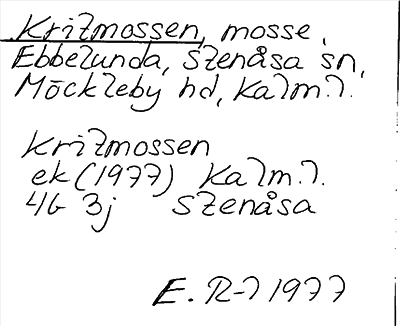 Kritmossen, mosse,
Ebbelunda, Stenåsa sn,
Möckleby hd, Kalm.l.
Kritmossen
ek (1977) Kalm.l.
4G 3j Stenåsa
E. R-l 1977